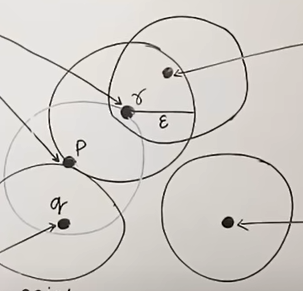 r
ε
p
q